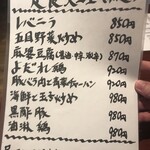 レバニラ 850円
五目野菜炒め 850円
麻婆豆腐 870円
よだれ鶏 920円
豚バラ肉と 900円
海鮮と玉子炒め 980円
黒酢豚 980円
油淋鶏 980円